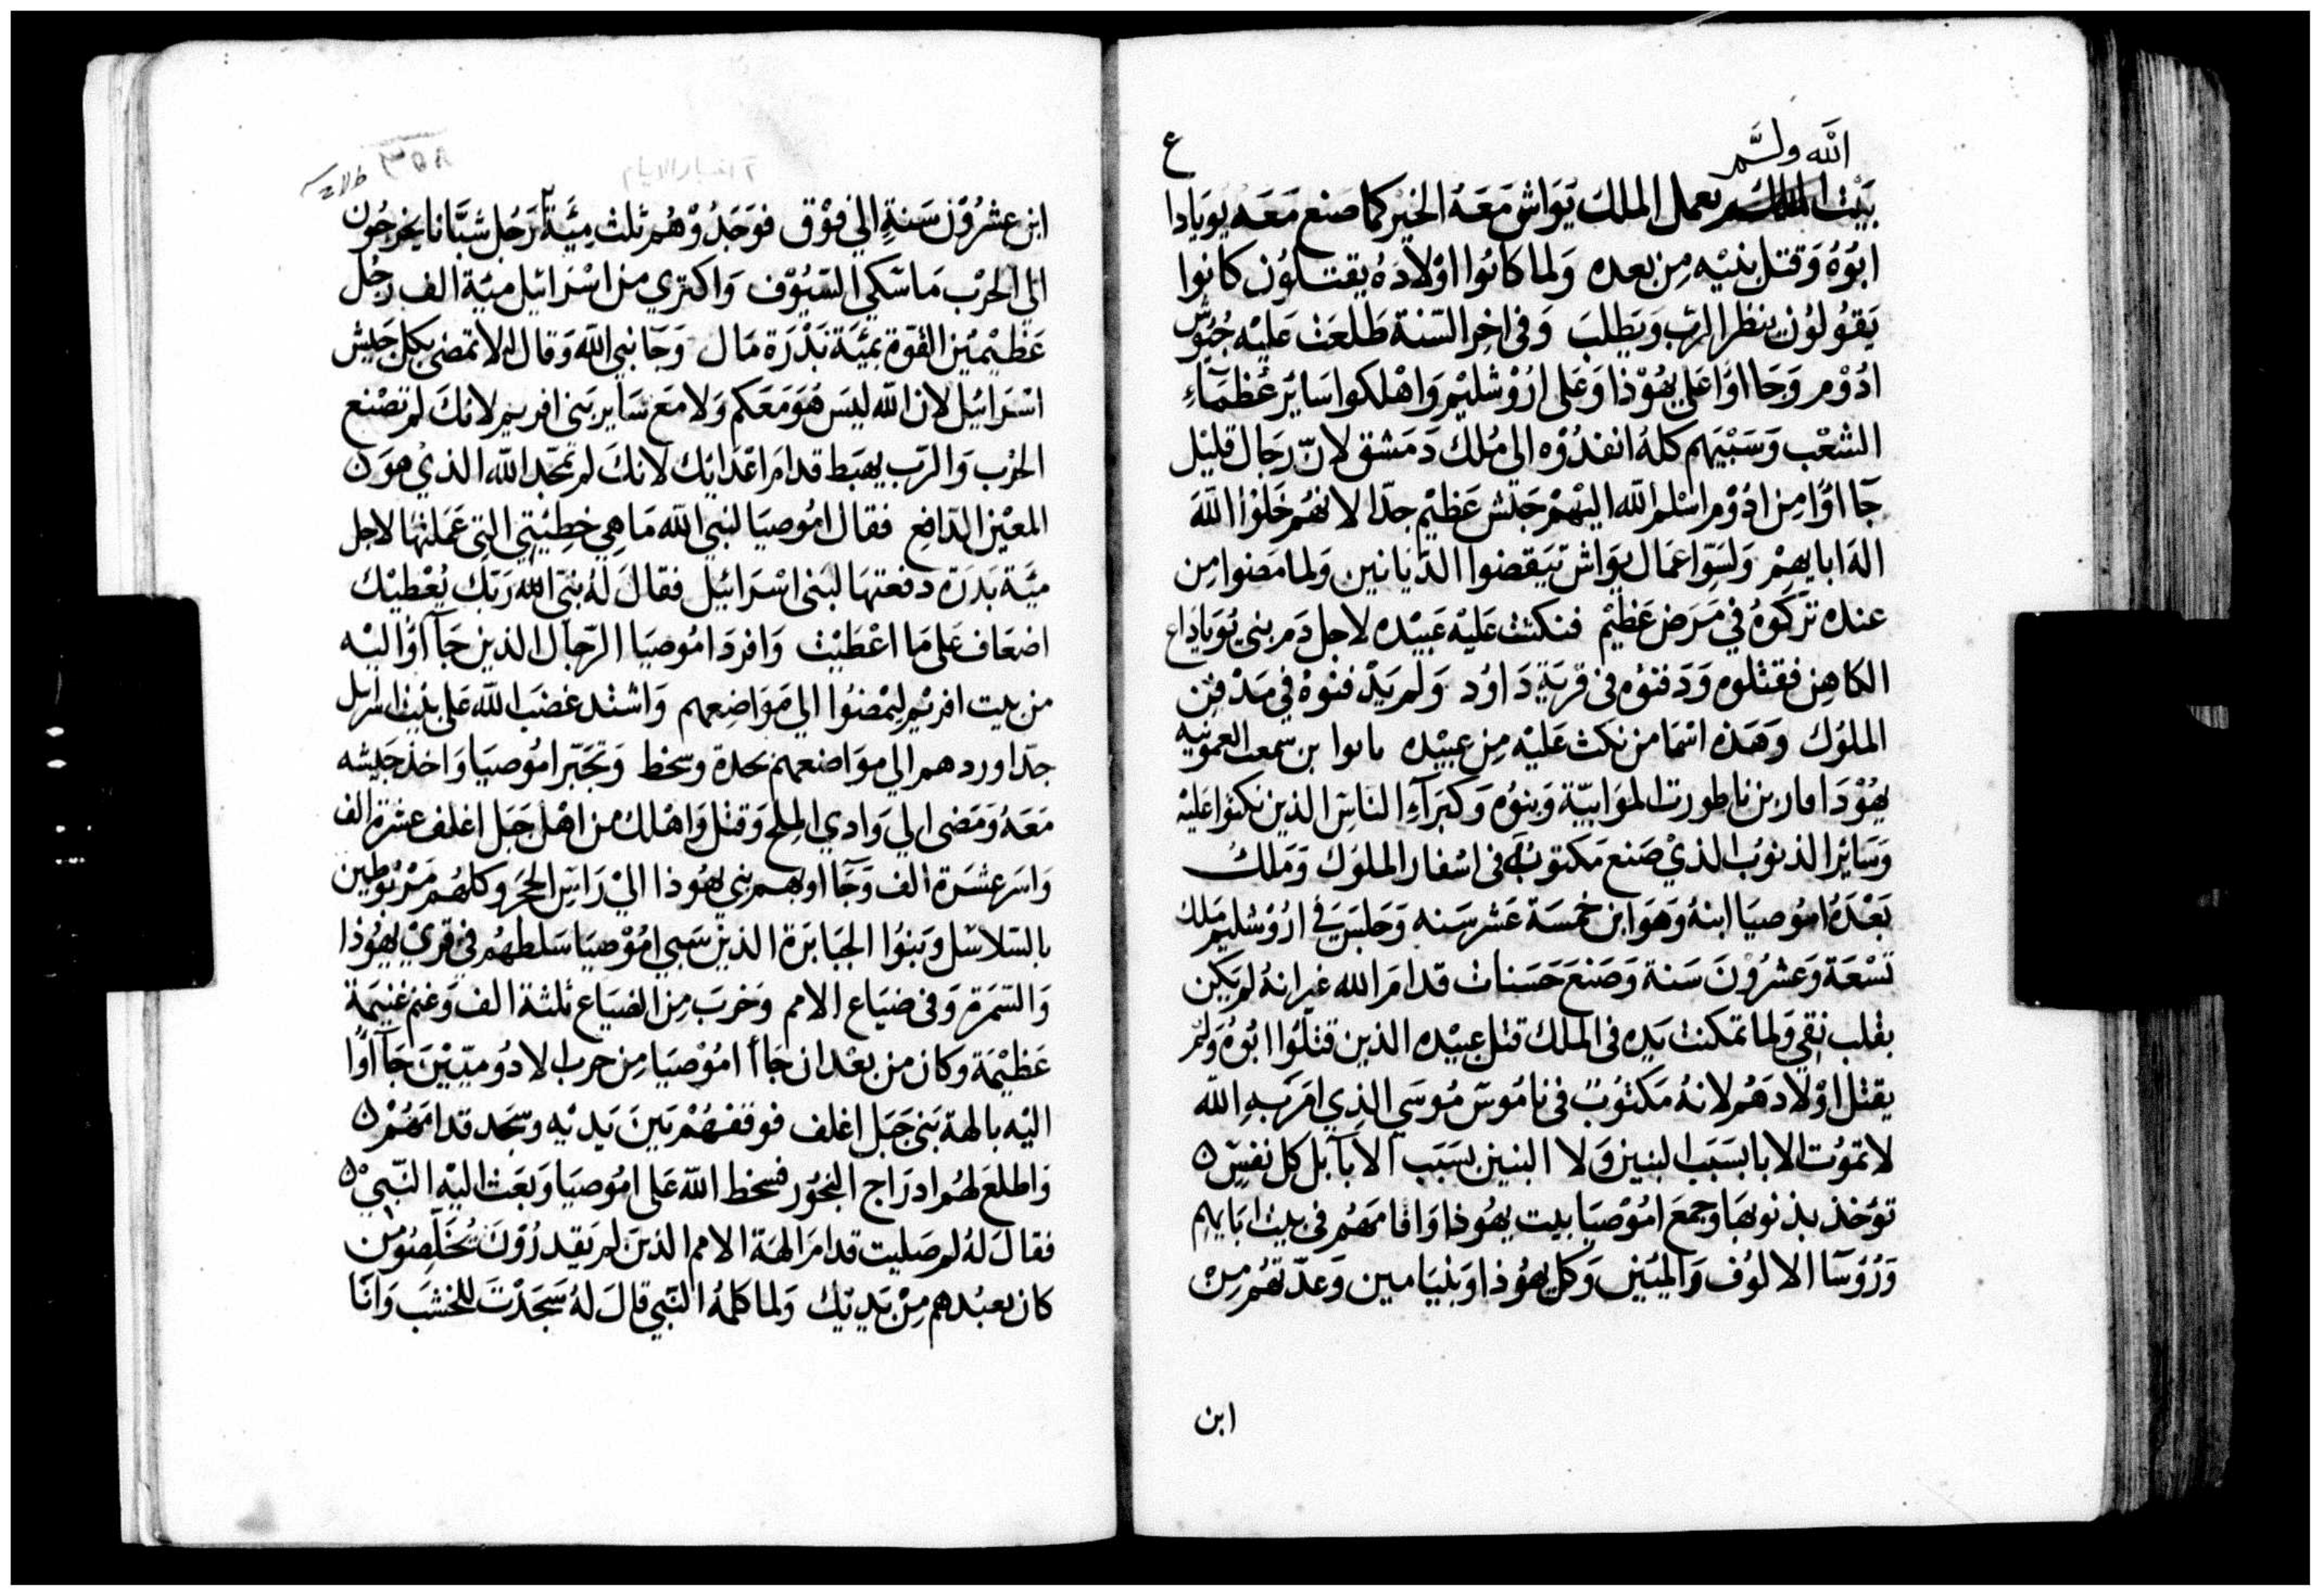 الله ولم
بَيْت الله يعمل الملك يَوَاش مَعَهُ الخير كما صنع مَعَه يويَادا ع
ابُوهُ وَقتل بنيْه مِن بعده وَلما كانوا اوْلادَهُ يقتلوُن كانوا
يَقوُلوُن ينظر الرب وَيَطلب وَفى اخِر السّنة طَلعَت عَليْه جُيُوش
ادُوْم وَجَااوُا عَلى يهُوْذا وَعَلى ارُوْشليْم وَاهْلكوا سَايَر عُظمَآءِ
الشعْب وَسَبْيَهم كلهُ انفدُوْه الي مُلك دَمَشق لانّ رجَال قليْل
جَااوُا مِن ادُوْم اسْلم الله اليْهمْ جَيْش عَظيْم جدّا لانهُم خَلوْا اللهَ
الهَ ابايهمْ وَلسَوّا عمَال يوَاش تيَقضوا الدّيَانين وَلما مَضوا مِن
عنده تركوُهُ في مَرَض عَظيْم فنكثت عَليْه عَبيْده لاجل دَم بني يُويَادَاع
الكاهِن فقتلوه وَدَفنوُه فى قريَةِ دَاوُد وَلم يَدْفنوُهُ في مَدْفن
الملوُك وَهَذه اسْمَا من نكث عَليْه مِن عبيْده بن سمعت العمونيه
يهُوْدَا بن ناطورت الموَابيّة وَبنوُه وَكبَرَآءِ النَاسِ الذين نكثوا عَليْه
وَسَايْر الذنوُب الذيْ صَنع مَكتوُبٌ فى اسْفار الملوُك وَمَلكَ
بَعْدَهُ امُوصيَا ابنهُ وَهوَ ابن خمْسَة عَشر سَنه وَجَلسَ فى ارُوْشليم مَلك
تسْعَة وَعشرُوْنَ سَنة وَصَنعَ حَسَنات قدامَ الله غير انهُ لم يَكن
بقلب نقي وَلما تمكنت يَده فى الملك قتل عبيْده الذين قتلوُا ابُوه وَلم
يقتل اوْلادَهُم لانهُ مَكتوُبٌ فى نامُوس مُوسَي الذي امَرَ بهِ الله
لا تموُت الابا بسَبَب البنين وَلا البنين بسَبَب الابَآ بل كل نفسٍ
توُخذ بذنوبهَا وَجمعَ امُوْصيَا بيت يهُوذا وَاقامَهُم فى بيْت ابَايهِم
وَرُوُسَآ الالوُف وَالميَين وَكل يهُوذا وَبنيَامين وَعدّتهُم مِن
ابن
٢ اخبار الايام
ابن عشرُوْن سَنةٍ الي فوْق فوَجَدُوْهُم ثلث مِئَة رَجُل شبَّانا يخرجُون
الي الحرْب مَاسَكي السّيُوْف وَاكتري من اسْرَائيل ميَة الف رجُل
عَظيْمَين القوّة بمئَة بَدْرَة مَال وَجَا نبي الله وَقال له لا تمضى بكل جَيش
اسْرَائيل لان الله ليسَ هوَ مَعَكم وَلا مَعَ سَاير بَنى افريم لانك لم تصْنع
الحَرْب وَالرّب يهبَط قدامَ اعْدَائك لانكَ لم تمجّد الله الذيْ هوَن
المعيْن الدّافع فقال امُوصيَا لنبي الله مَا هي خطيئتي التي عَمَلتهَا لاجل
ميَة بَدرَة دفعتهَا لبَنى اسْرَائيل فقالَ لهُ نبي الله رَبّك يُعْطيْك
اضعَاف عَلى مَا اعْطَيْت وَافرد امُوصيَا الرّجال الذين جَآاوُا اليْه
من بيت افريْم ليْمضوُا الي مَوَاضِعهم وَاشتد غضَب الله عَلى بيْت اسْرائيل
جدّا وردهم الي موَاضعهم بحدة وسخط وَتجَبّر امُوصيَا وَاخذ جَيْشه
مَعَهُ وَمَضى الي وَادي الملح وَقتل وَاهْلك من اهْل جَبَل اغلف عشرة الف
وَاسَر عشَرة الف وَجَآاوا بهم بني يهُوذا اليْ رَاس الحجَر وكلهُم مَرْبُوطين
بالسّلاسَل وَبَنوُا الجبَابرَة الذين سَبي امُوْصيَا سَلطهُم فى قريْ يهُوذا
وَالسّمَرة وَفى ضيَاع الامم وَخربَ مِن الضيَاع ثلثة الف وَغنمْ غنيمَة
عَظيْمَة وكان من بعْد ان جَاأ امُوْصيَا مِن حرب الادُوميّيْنَ جَآاوُا
اليْه بالهة بَني جَبَل اغلف فوقفهُمْ بَينَ يَديْه وَسَجد قدامَهُمْ
وَاطلعَ لهُم ادرَاج البَخوُر فسخط الله عَلى امُوصيَا وَبَعَث اليْه النّبيْ
فقالَ لهُ لم صَليت قدامَ الهَة الامم الذينَ لم يَقدرُوْنَ يُخَلّصُوا من
كان يعبُدهم مِنْ يَديْك وَلما كلمهُ النّبي قالَ لهُ سَجَدْتَ للخشَب وَانَا